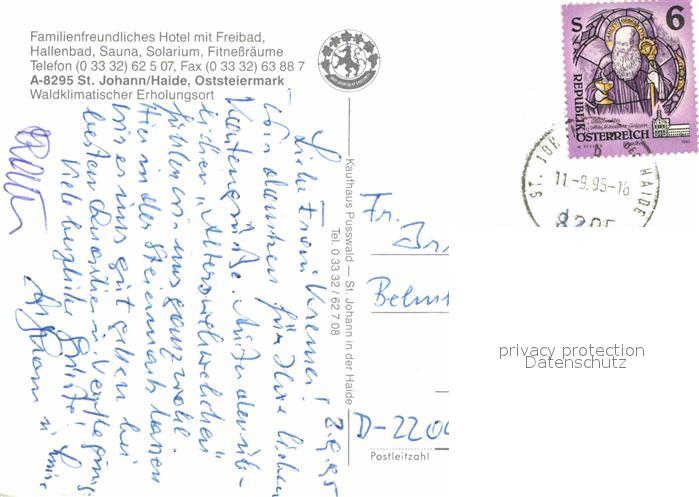 Familienfreundliches Hotel mit Freibad,
Hallenbad, Sauna, Solarium, Fitneßräume
Telefon (0 33 32) 62 5 07, Fax (0 33 32) 63 88 7
A-8295 St. Johann/Haide, Oststeiermark
Waldklimatischer Erholungsort
2.9.95
Liebe Frau
wir danken für Ihre lieben
Kartengrüße. Außer den üb-
lichen "Alterswehwehchen"
fühlen wir uns ganz wohl.
Hier in der Steiermark lassen
wir es uns gut gehen bei
bestem Quartier u. Verpflegung.
Viele herzliche Grüße!
Kaufhaus Pusswald — St. Johann in der Haide
Tel. 0 33 32 / 62 7 08
Fr.
D-220
Postleitzahl
S 6
REPUBLIK
ÖSTERREICH
ST. JO
HAIDE
11.-9.95-16
8295
privacy protection
Datenschutz